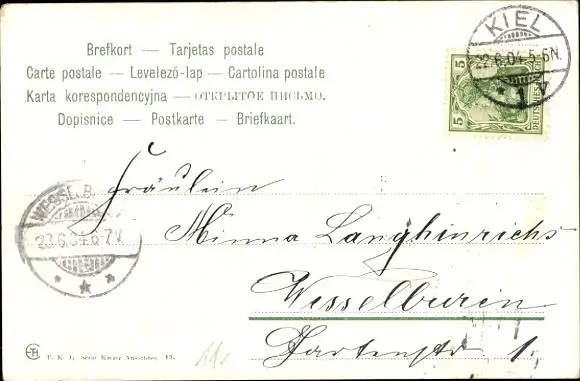 Brefkort — Tarjetas postale
Carte postale — Levelezö-lap — Cartolina postale
Karta korespondencyjna — ОТКРЫТОЕ ПИСЬМО.
Dopisnice — Postkarte — Briefkaart.
KIEL
22.6.04. 5-6N.
5
5
DEUTSCHES REICH
WESSELB
23.6.04. 6-7V.
Fräulein
Minna Langhinrichs
Wesselburen
Gartenstr 1.
T. K. I. Serie Kieler Ansichten 13.